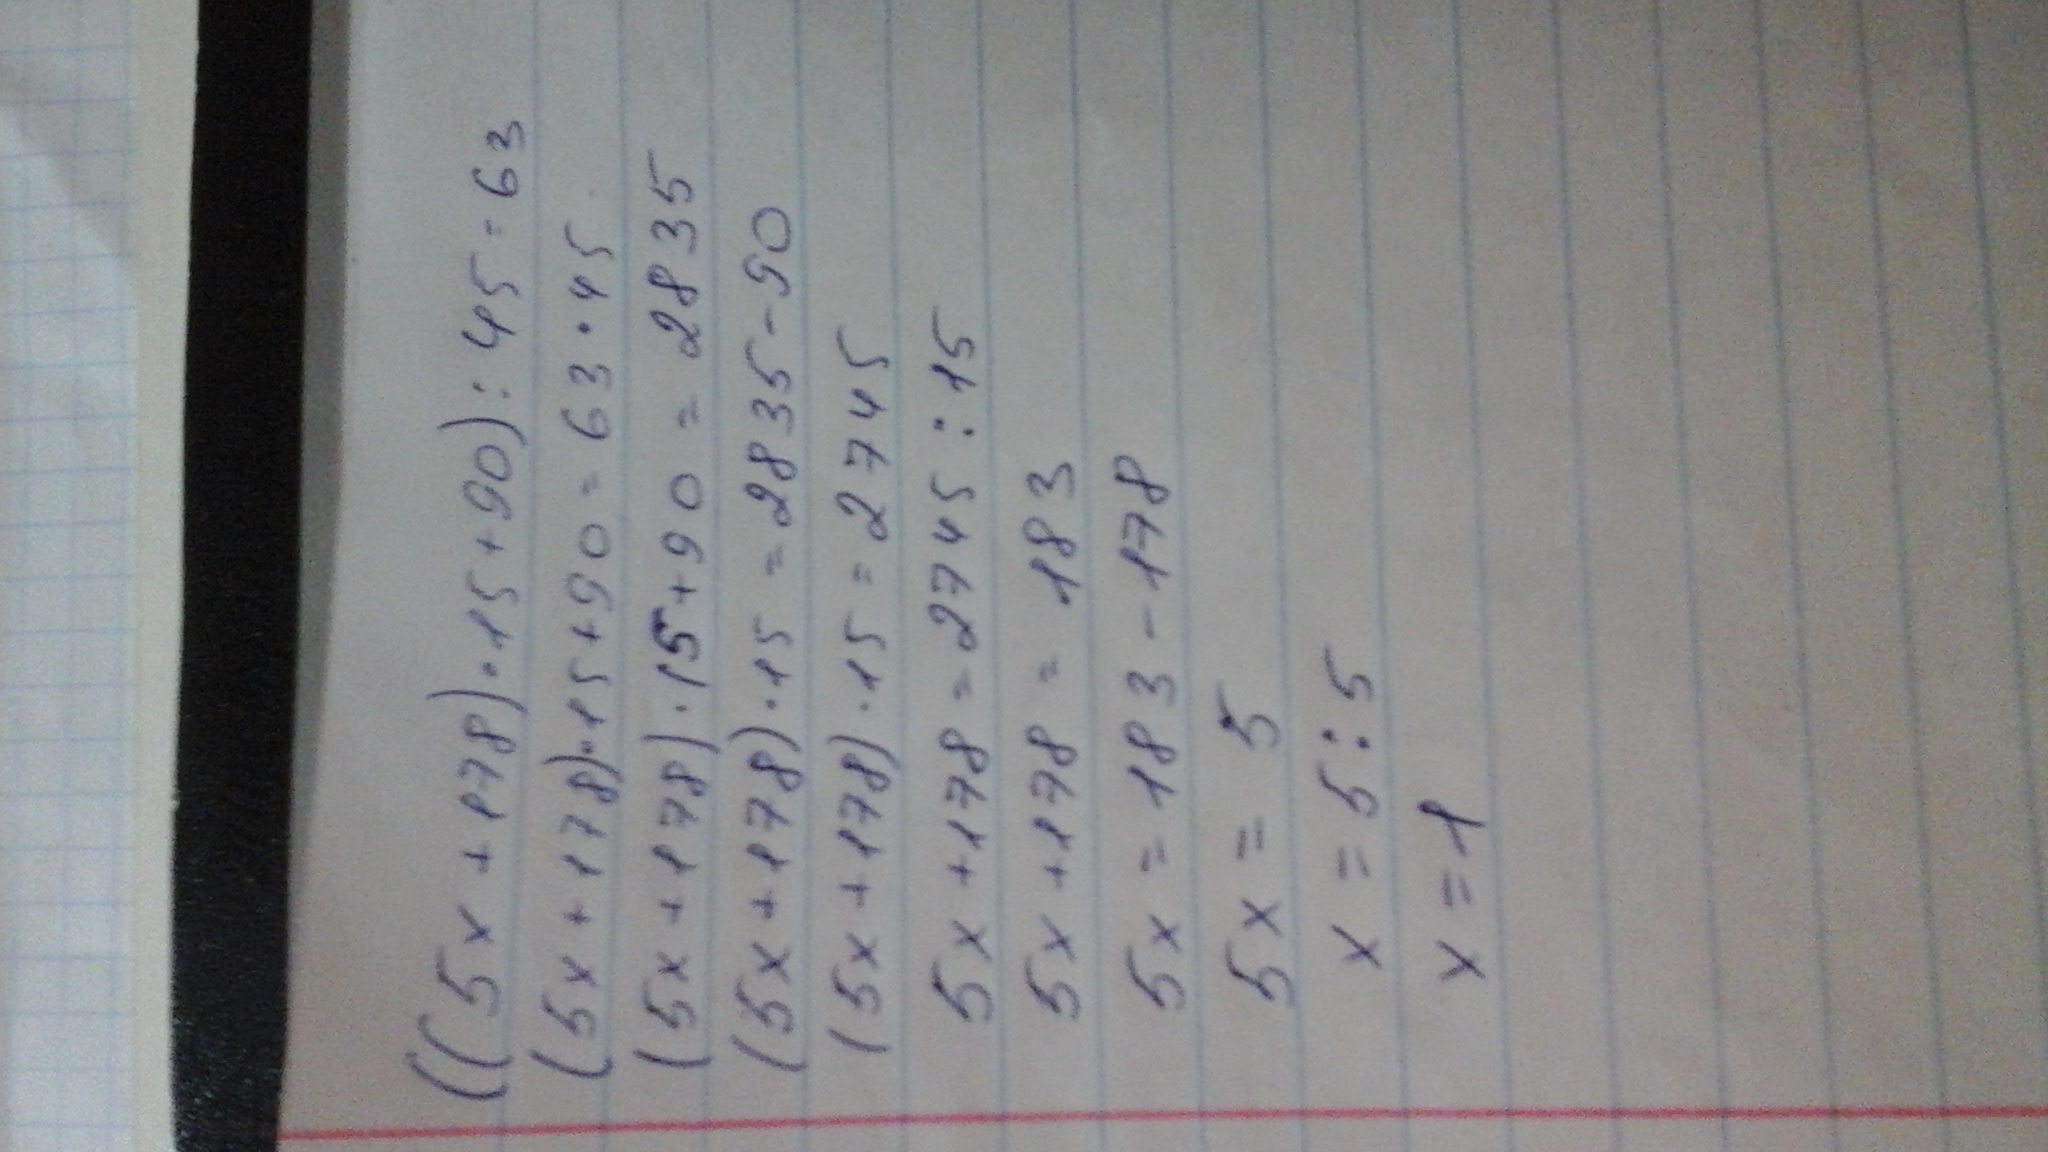 ((5x+178)·15+90):45=63
(5x+178)·15+90=63·45
(5x+178)·15+90=2835
(5x+178)·15=2835-90
(5x+178)·15=2745
5x+178=2745:15
5x+178=183
5x=183-178
5x=5
x=5:5
x=1